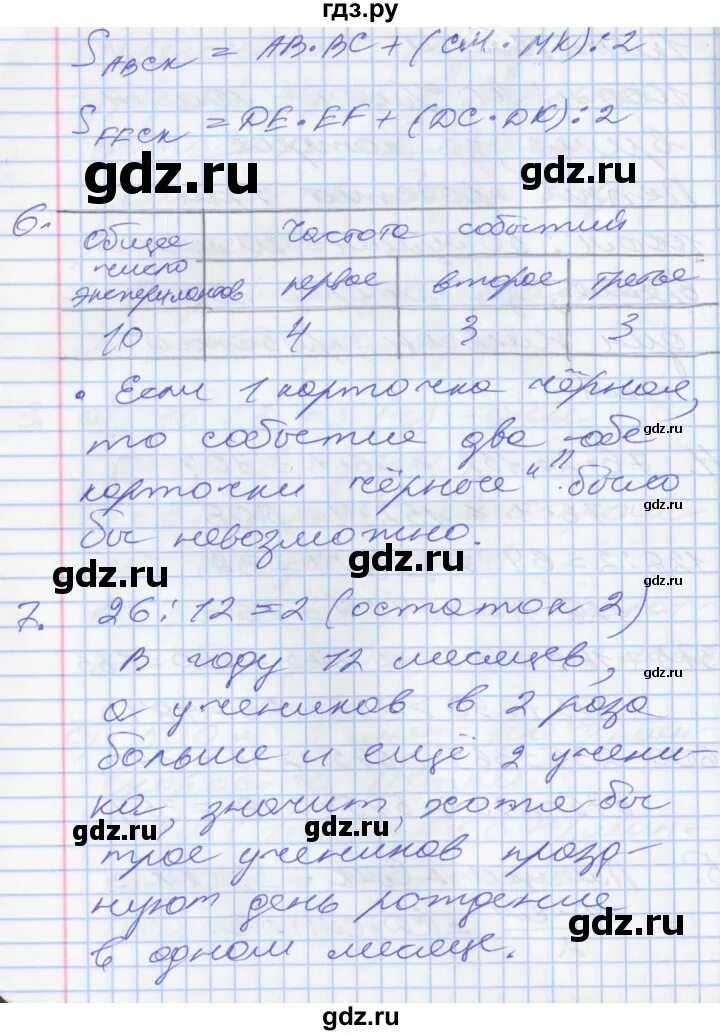 гдз.ру
S ABCK = AB·BC + (CM · MK) : 2
S EFCK = DE·EF + (DC·DK) : 2
gdz.ru gdz.ru
6. Общее число экспериментов Частота событий
первое второе третье
10 4 3 3
• Если 1 карточка чёрная,
то событие два „обе
gdz.ru
карточки чёрные" было
gdz.ru
бы невозможно.
gdz.ru gdz.ru gdz.ru
7. 26 : 12 = 2 (остаток 2)
В году 12 месяцев,
gdz.ru
а учеников в 2 раза
больше и ещё 2 учени-
ка, значит, хотя бы
gdz.ru gdz.ru
трое учеников празд-
gdz.ru
нуют день рождение
gdz.ru
в одном месяце.